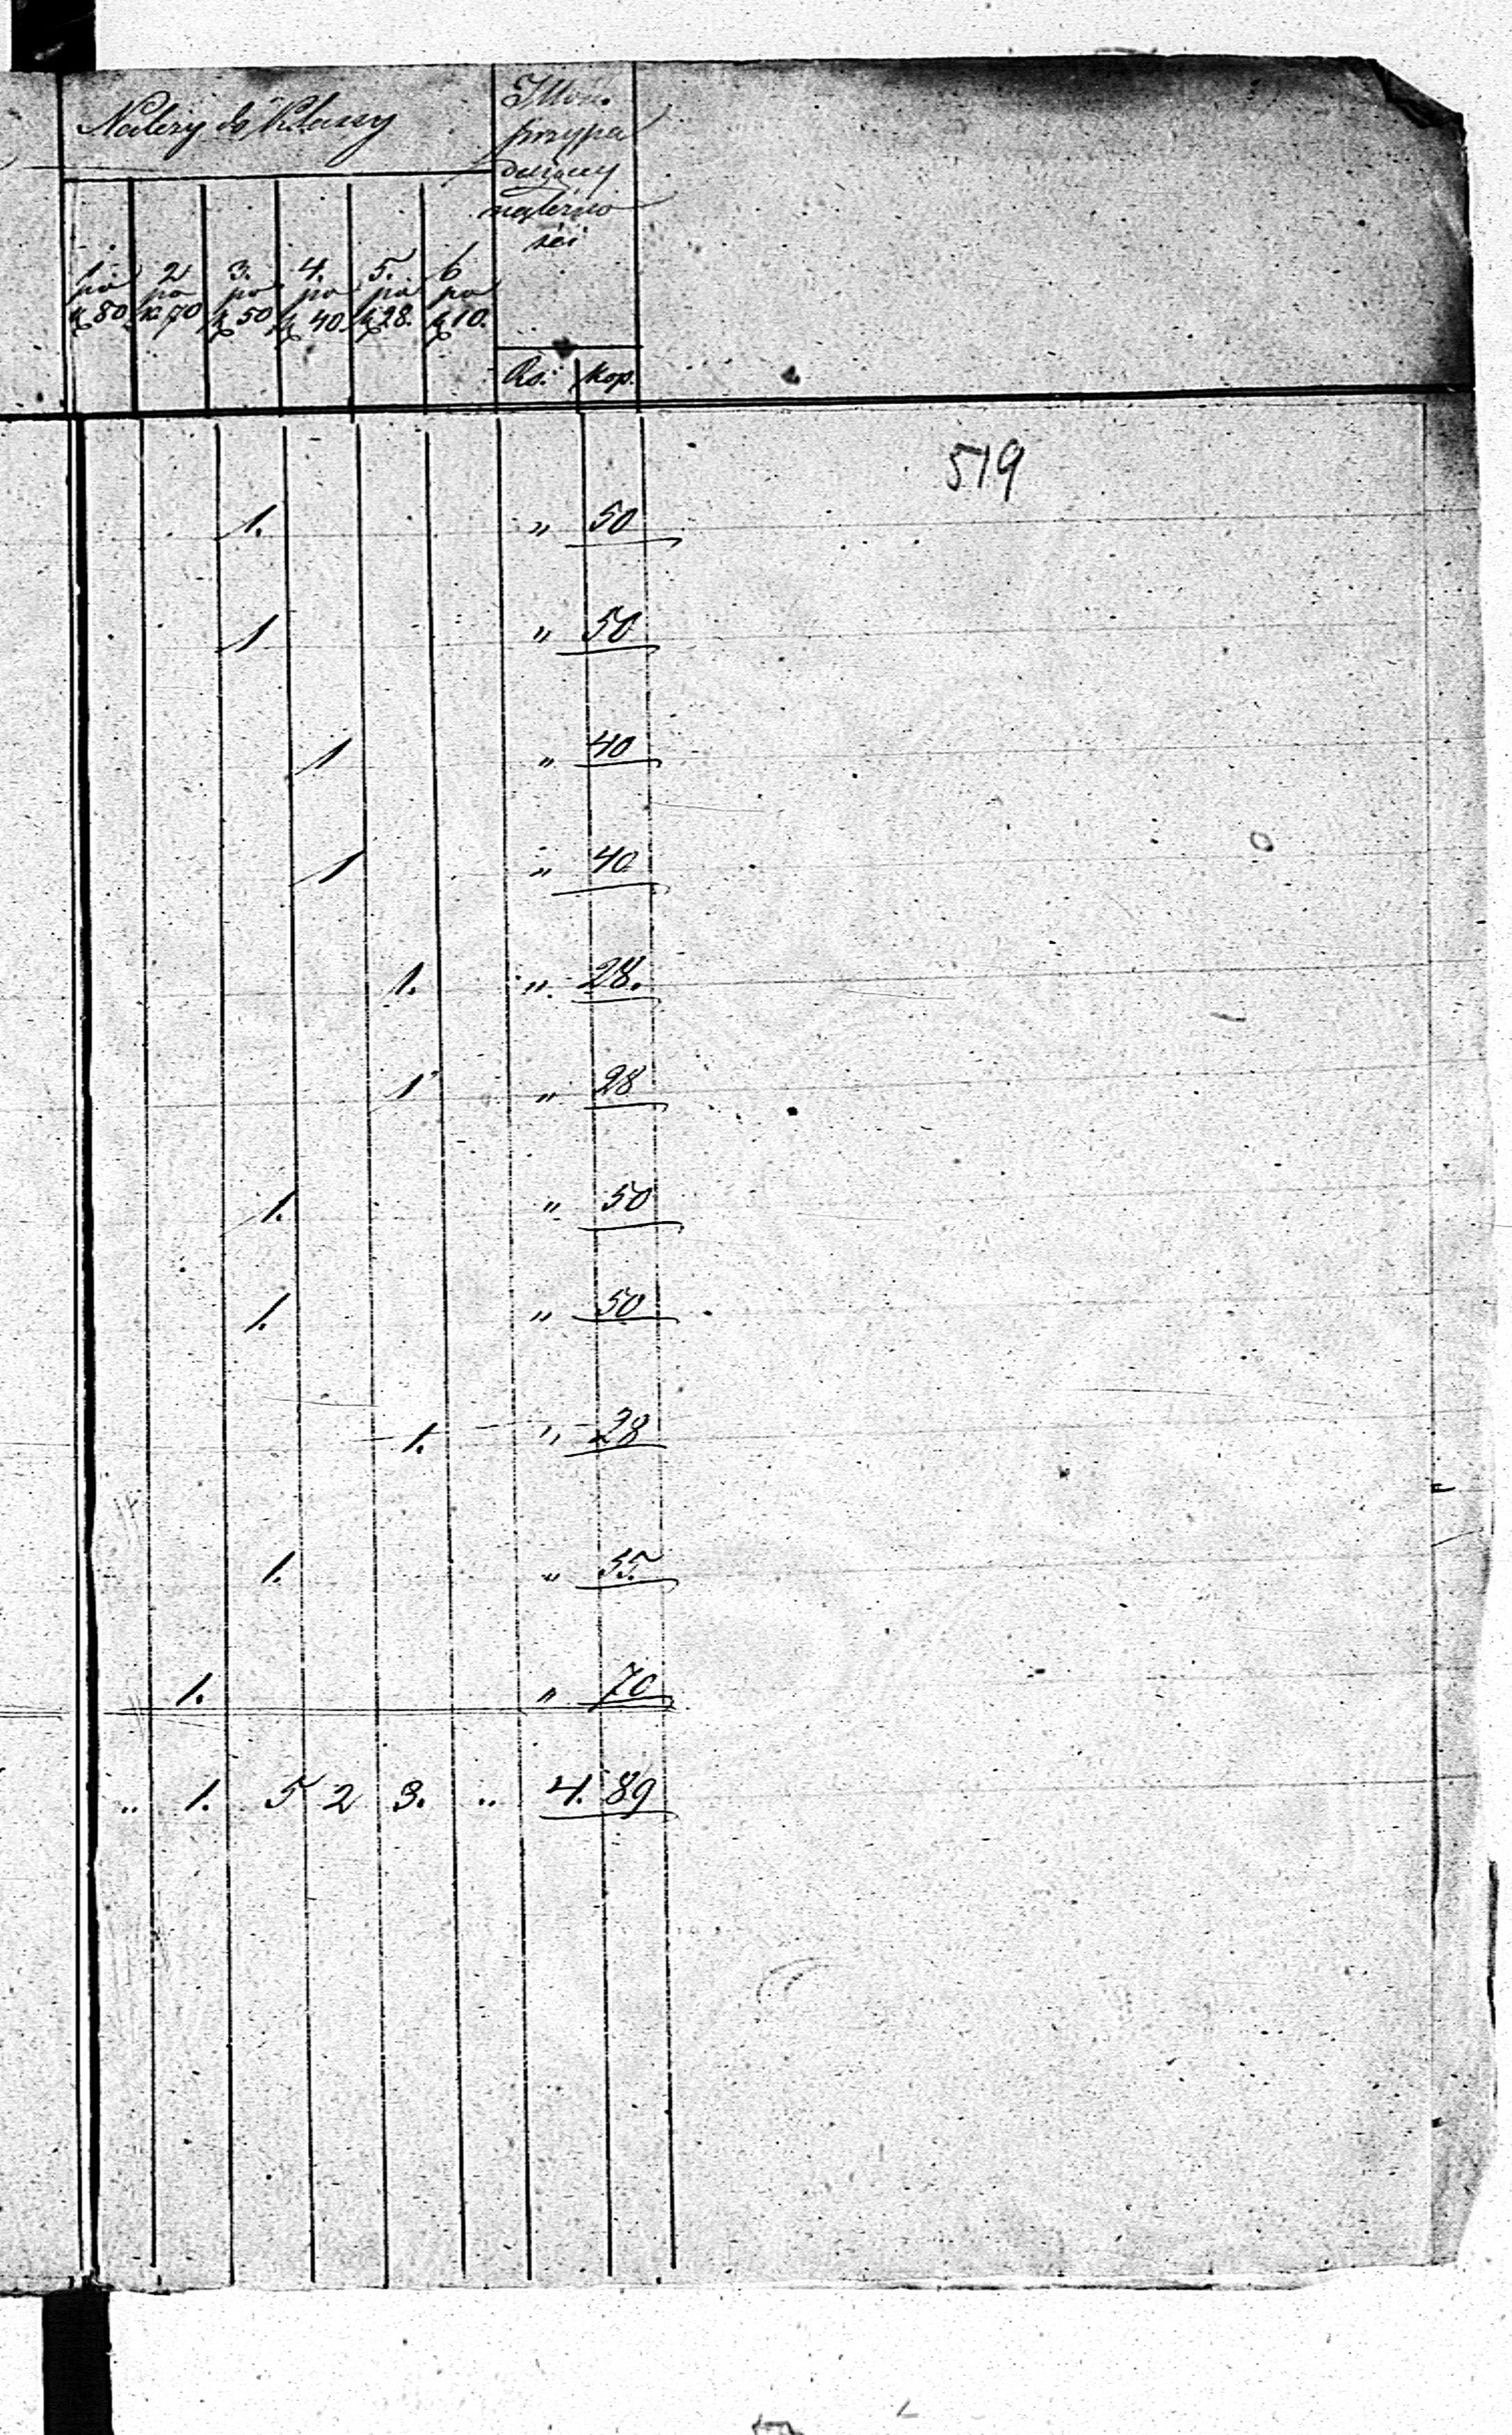 Należy do Klassy
przypa
dający
należno
ści
1. 2 3. 4. 5. 6
po po po po po po
k 80. k 70 k 50 k 40. k 28. k 10.
Rs. kop.
519
1. " 50
1 " 50
1 " 40
1 " 40
1. " 28.
1 " 28
1. " 50
1. " 50
1. " 28
1. " 55.
1. " 70
" 1. 5 2 3. " 4. 89